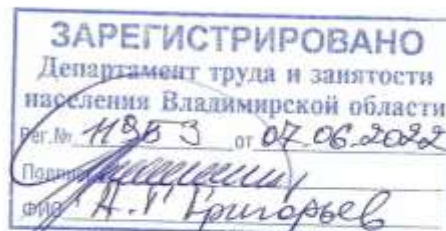 ЗАРЕГИСТРИРОВАНО
Департамент труда и занятости
населения Владимирской области
Рег.№ 11953 от 07.06.2022
Подпись
ФИО А.Г Григорьев